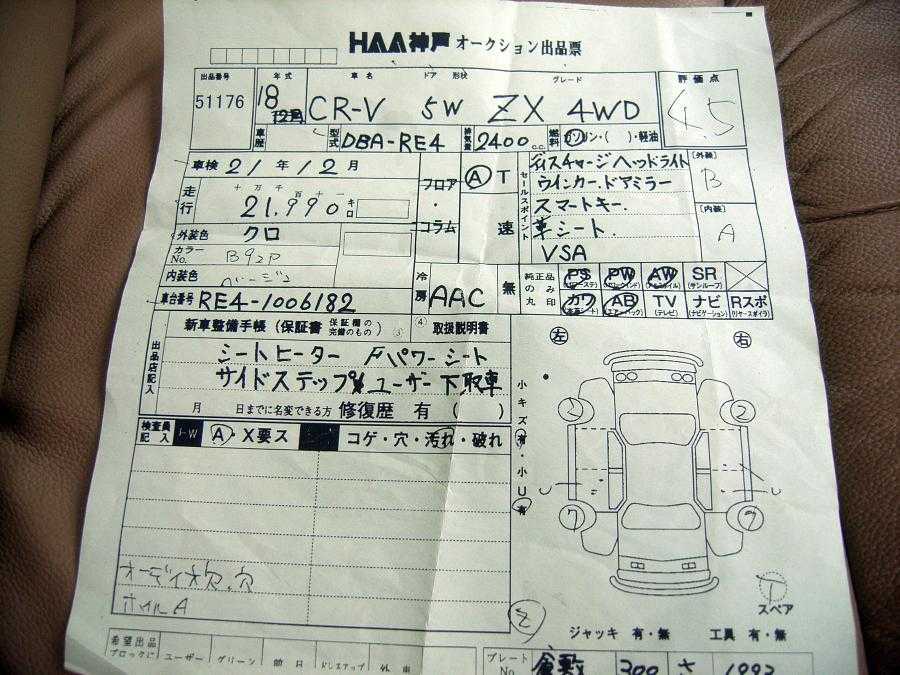 HAA神戸 オークション出品票
出品番号 年式 車名 ドア 形状 グレード 評価点
51176 18 CR-V 5W ZX 4WD 4.5
車歴 型式 DBA-RE4 排気量 2400 c.c. 燃料 ガソリン・( )・軽油
車検 21年12月 フロア・コラム A T 速
走行 十万千百十一
21,990 キロ
外装色 クロ
カラーNo. B92P
内装色 ベージュ
車台番号 RE4-1006182
冷房 AAC 無
セールスポイント
ディスチャージヘッドライト
ウインカードアミラー
スマートキー
革シート
VSA
[外装] B
[内装] A
純正品のみ丸印 PS PW AW SR (サンルーフ)
カワ AB TV (テレビ) ナビ (ナビゲーション) Rスポ (リヤースポイラ)
新車整備手帳 (保証書 保証欄の完備のもの) 取扱説明書
出品店記入
シートヒーター Fパワーシート
サイドステップ ユーザー下取車
月 日までに名変できる方 修復歴 有 ( )
検査員記入 A・X要ス コゲ・穴・汚れ・破れ
オーディオ欠.穴
ホイルA
左 右
小キズ有・小U有
2 2
7 7
スペア
ジャッキ 有・無 工具 有・無
希望出品ブロックに ユーザー グリーン
プレートNo. 倉敷 300 さ 1993